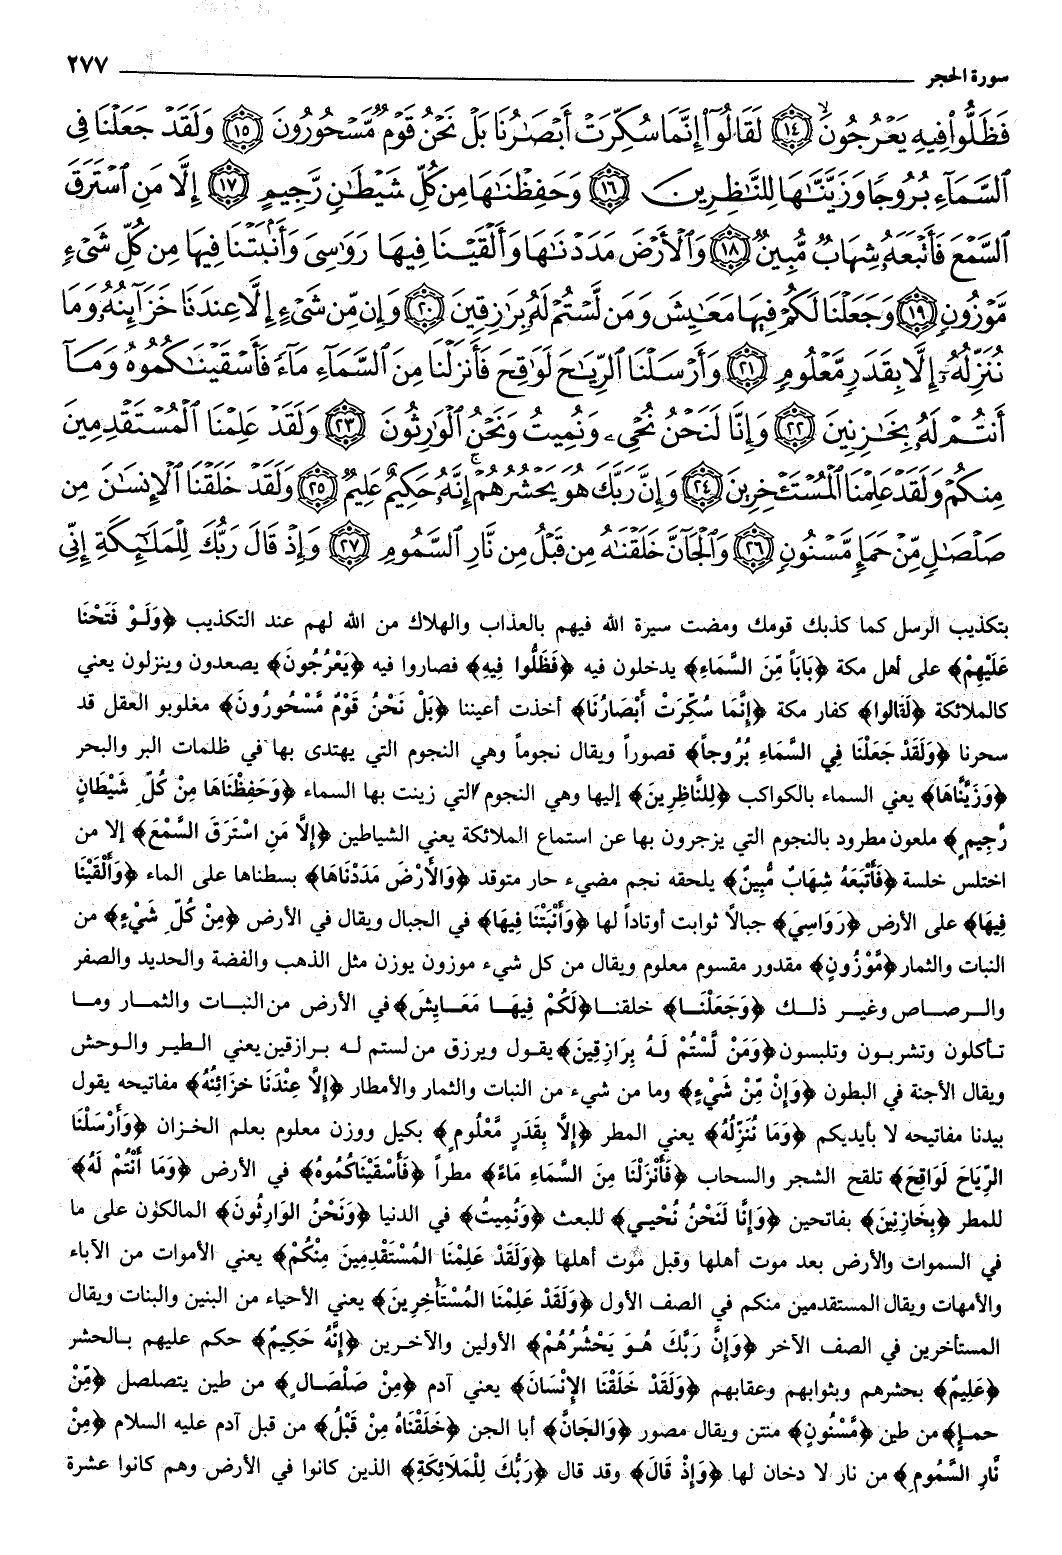 سورة الحجر ٢٧٧
فَظَلُّوا۟ فِيهِ يَعْرُجُونَ ١٤ لَقَالُوٓا۟ إِنَّمَا سُكِّرَتْ أَبْصَٰرُنَا بَلْ نَحْنُ قَوْمٌ مَّسْحُورُونَ ١٥ وَلَقَدْ جَعَلْنَا فِى
ٱلسَّمَآءِ بُرُوجًا وَزَيَّنَّٰهَا لِلنَّٰظِرِينَ ١٦ وَحَفِظْنَٰهَا مِن كُلِّ شَيْطَٰنٍ رَّجِيمٍ ١٧ إِلَّا مَنِ ٱسْتَرَقَ
ٱلسَّمْعَ فَأَتْبَعَهُۥ شِهَابٌ مُّبِينٌ ١٨ وَٱلْأَرْضَ مَدَدْنَٰهَا وَأَلْقَيْنَا فِيهَا رَوَٰسِىَ وَأَنۢبَتْنَا فِيهَا مِن كُلِّ شَىْءٍ
مَّوْزُونٍ ١٩ وَجَعَلْنَا لَكُمْ فِيهَا مَعَٰيِشَ وَمَن لَّسْتُمْ لَهُۥ بِرَٰزِقِينَ ٢٠ وَإِن مِّن شَىْءٍ إِلَّا عِندَنَا خَزَآئِنُهُۥ وَمَا
نُنَزِّلُهُۥٓ إِلَّا بِقَدَرٍ مَّعْلُومٍ ٢١ وَأَرْسَلْنَا ٱلرِّيَٰحَ لَوَٰقِحَ فَأَنزَلْنَا مِنَ ٱلسَّمَآءِ مَآءً فَأَسْقَيْنَٰكُمُوهُ وَمَآ
أَنتُمْ لَهُۥ بِخَٰزِنِينَ ٢٢ وَإِنَّا لَنَحْنُ نُحْىِۦ وَنُمِيتُ وَنَحْنُ ٱلْوَٰرِثُونَ ٢٣ وَلَقَدْ عَلِمْنَا ٱلْمُسْتَقْدِمِينَ
مِنكُمْ وَلَقَدْ عَلِمْنَا ٱلْمُسْتَـْٔخِرِينَ ٢٤ وَإِنَّ رَبَّكَ هُوَ يَحْشُرُهُمْ ۚ إِنَّهُۥ حَكِيمٌ عَلِيمٌ ٢٥ وَلَقَدْ خَلَقْنَا ٱلْإِنسَٰنَ مِن
صَلْصَٰلٍ مِّنْ حَمَإٍ مَّسْنُونٍ ٢٦ وَٱلْجَآنَّ خَلَقْنَٰهُ مِن قَبْلُ مِن نَّارِ ٱلسَّمُومِ ٢٧ وَإِذْ قَالَ رَبُّكَ لِلْمَلَٰٓئِكَةِ إِنِّى
بتكذيب الرسل كما كذبك قومك ومضت سيرة الله فيهم بالعذاب والهلاك من الله لهم عند التكذيب ﴿وَلَوْ فَتَحْنَا
عَلَيْهِمْ﴾ على أهل مكة ﴿بَاباً مِّنَ السَّمَاءِ﴾ يدخلون فيه ﴿فَظَلُّوا فِيهِ﴾ فصاروا فيه ﴿يَعْرُجُونَ﴾ يصعدون وينزلون يعني
كالملائكة ﴿لَقَالُوا﴾ كفار مكة ﴿إِنَّمَا سُكِّرَتْ أَبْصَارُنَا﴾ أخذت أعيننا ﴿بَلْ نَحْنُ قَوْمٌ مَّسْحُورُونَ﴾ مغلوبو العقل قد
سحرنا ﴿وَلَقَدْ جَعَلْنَا فِي السَّمَاءِ بُرُوجاً﴾ قصوراً ويقال نجوماً وهي النجوم التي يهتدى بها في ظلمات البر والبحر
﴿وَزَيَّنَّاهَا﴾ يعني السماء بالكواكب ﴿لِلنَّاظِرِينَ﴾ إليها وهي النجوم التي زينت بها السماء ﴿وَحَفِظْنَاهَا مِنْ كُلِّ شَيْطَانٍ
رَّجِيمٍ﴾ ملعون مطرود بالنجوم التي يزجرون بها عن استماع الملائكة يعني الشياطين ﴿إِلاَّ مَنِ اسْتَرَقَ السَّمْعَ﴾ إلا من
اختلس خلسة ﴿فَأَتْبَعَهُ شِهَابٌ مُّبِينٌ﴾ يلحقه نجم مضيء حار متوقد ﴿وَالأَرْضَ مَدَدْنَاهَا﴾ بسطناها على الماء ﴿وَأَلْقَيْنَا
فِيهَا﴾ على الأرض ﴿رَوَاسِيَ﴾ جبالاً ثوابت أوتاداً لها ﴿وَأَنْبَتْنَا فِيهَا﴾ في الجبال ويقال في الأرض ﴿مِنْ كُلِّ شَيْءٍ﴾ من
النبات والثمار ﴿مَّوْزُونٍ﴾ مقدور مقسوم معلوم ويقال من كل شيء موزون يوزن مثل الذهب والفضة والحديد والصفر
والرصاص وغير ذلك ﴿وَجَعَلْنَا﴾ خلقنا ﴿لَكُمْ فِيهَا مَعَايِشَ﴾ في الأرض من النبات والثمار وما
تأكلون وتشربون وتلبسون ﴿وَمَنْ لَّسْتُمْ لَهُ بِرَازِقِينَ﴾ يقول ويرزق من لستم له برازقين يعني الطير والوحش
ويقال الأجنة في البطون ﴿وَإِنْ مِّنْ شَيْءٍ﴾ وما من شيء من النبات والثمار والأمطار ﴿إِلاَّ عِنْدَنَا خَزَائِنُهُ﴾ مفاتيحه يقول
بيدنا مفاتيحه لا بأيديكم ﴿وَمَا نُنَزِّلُهُ﴾ يعني المطر ﴿إِلاَّ بِقَدَرٍ مَّعْلُومٍ﴾ بكيل ووزن معلوم بعلم الخزان ﴿وَأَرْسَلْنَا
الرِّيَاحَ لَوَاقِحَ﴾ تلقح الشجر والسحاب ﴿فَأَنْزَلْنَا مِنَ السَّمَاءِ مَاءً﴾ مطراً ﴿فَأَسْقَيْنَاكُمُوهُ﴾ في الأرض ﴿وَمَا أَنْتُمْ لَهُ﴾
للمطر ﴿بِخَازِنِينَ﴾ بفاتحين ﴿وَإِنَّا لَنَحْنُ نُحْيِي﴾ للبعث ﴿وَنُمِيتُ﴾ في الدنيا ﴿وَنَحْنُ الوَارِثُونَ﴾ المالكون على ما
في السموات والأرض بعد موت أهلها وقبل موت أهلها ﴿وَلَقَدْ عَلِمْنَا المُسْتَقْدِمِينَ مِنْكُمْ﴾ يعني الأموات من الآباء
والأمهات ويقال المستقدمين منكم في الصف الأول ﴿وَلَقَدْ عَلِمْنَا المُسْتَأْخِرِينَ﴾ يعني الأحياء من البنين والبنات ويقال
المستأخرين في الصف الآخر ﴿وَإِنَّ رَبَّكَ هُوَ يَحْشُرُهُمْ﴾ الأولين والآخرين ﴿إِنَّهُ حَكِيمٌ﴾ حكم عليهم بالحشر
﴿عَلِيمٌ﴾ بحشرهم وبثوابهم وعقابهم ﴿وَلَقَدْ خَلَقْنَا الإِنْسَانَ﴾ يعني آدم ﴿مِنْ صَلْصَالٍ﴾ من طين يتصلصل ﴿مِّنْ
حمإٍ﴾ من طين ﴿مَّسْنُونٍ﴾ منتن ويقال مصور ﴿وَالجَانَّ﴾ أبا الجن ﴿خَلَقْنَاهُ مِنْ قَبْلُ﴾ من قبل آدم عليه السلام ﴿مِنْ
نَّارِ السَّمُومِ﴾ من نار لا دخان لها ﴿وَإِذْ قَالَ﴾ وقد قال ﴿رَبُّكَ لِلْمَلَائِكَةِ﴾ الذين كانوا في الأرض وهم كانوا عشرة